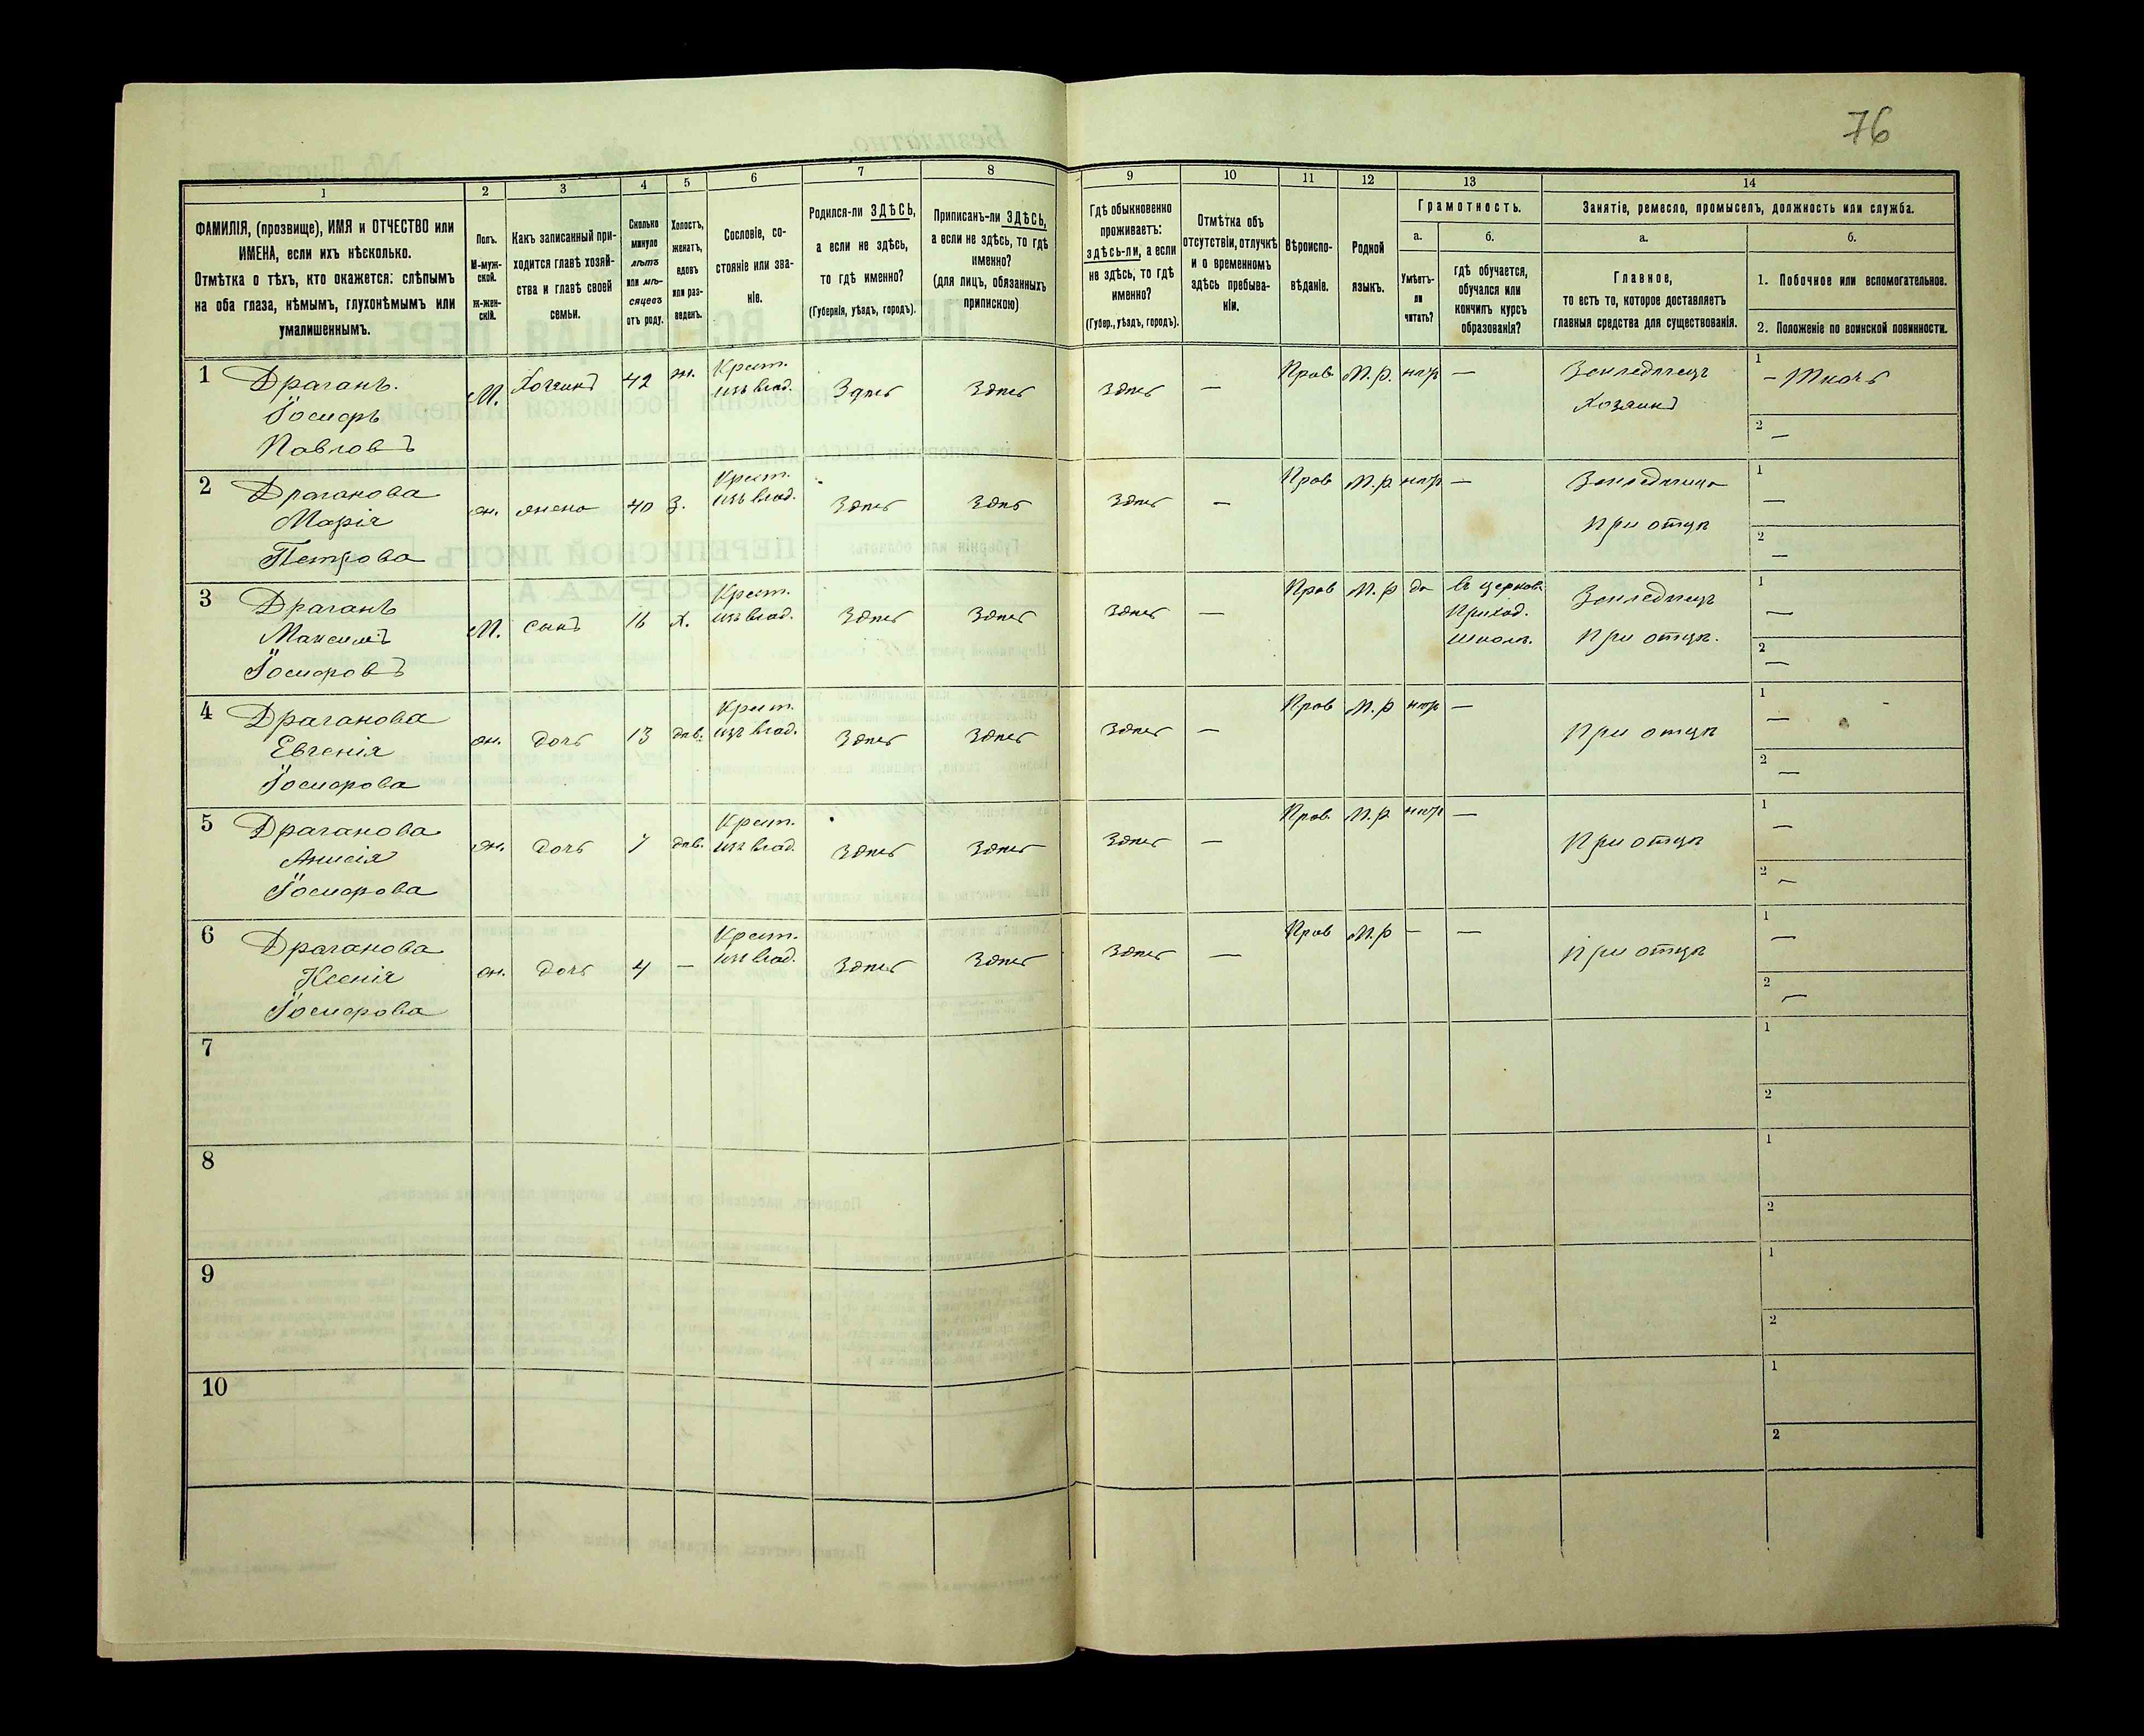 76
1
2
3
4
5
6
7
8
9
10
11
12
13
14
ФАМИЛІЯ, (прозвище), ИМЯ и ОТЧЕСТВО или
ИМЕНА, если ихъ нѣсколько.
Отмѣтка о тѣхъ, кто окажется: слѣпымъ
на оба глаза, нѣмымъ, глухонѣмымъ или
умалишеннымъ.
Полъ.
М-муж-
ской.
Ж-жен-
скій.
Какъ записанный при-
ходится главѣ хозяй-
ства и главѣ своей
семьи.
Сколько
минуло
лѣтъ
или мѣ-
сяцевъ
отъ роду.
Холостъ,
женатъ,
вдовъ
или раз-
веденъ.
Сословіе, со-
стояніе или зва-
ніе.
Родился-ли ЗДѢСЬ,
а если не здѣсь,
то гдѣ именно?
(Губернія, уѣздъ, городъ).
Приписанъ-ли ЗДѢСЬ,
а если не здѣсь, то гдѣ
именно?
(для лицъ, обязанныхъ
припискою)
Гдѣ обыкновенно
проживаетъ:
здѣсь-ли, а если
не здѣсь, то гдѣ
именно?
(Губер., уѣздъ, городъ).
Отмѣтка объ
отсутствіи, отлучкѣ
и о временномъ
здѣсь пребыва-
ніи.
Вѣроиспо-
вѣданіе.
Родной
языкъ.
Грамотность.
а.
Умѣетъ-
ли
читать?
б.
гдѣ обучается,
обучался или
кончилъ курсъ
образованія?
Занятіе, ремесло, промыселъ, должность или служба.
а.
Главное,
то есть то, которое доставляетъ
главныя средства для существованія.
б.
1. Побочное или вспомогательное.
2. Положеніе по воинской повинности.
1 Драганъ.
Іосифъ
Павловъ
М. Хозяинъ 42 ж. Крест.
изъ влад. Здѣсь Здѣсь Здѣсь — Прав. М.р. нѣтъ — Земледѣлецъ
Хозяинъ
1 - Ткачъ
2 —
2 Драганова
Марія
Петрова
ж. жена 40 З. Крест.
изъ влад. Здѣсь Здѣсь Здѣсь — Прав М.р нѣтъ —
При отцѣ
1 —
2 —
3 Драганъ
Максимъ
Іосифовъ
М. сынъ 16 х. Крест.
изъ влад. Здѣсь Здѣсь Здѣсь — Прав М.р да Въ церков.
Приход.
школѣ.
Земледѣлецъ
При отцѣ.
1 —
2 —
4 Драганова
Евгенія
Іосифова
ж. дочь 13 дѣв. Крест.
изъ влад. Здѣсь Здѣсь Здѣсь — Прав М.р нѣтъ — При отцѣ
1 —
2 —
5 Драганова
Анисія
Іосифова
ж. дочь 7 дѣв. Крест.
изъ влад. Здѣсь Здѣсь Здѣсь — Прав. М.р нѣтъ — При отцѣ
1 —
2 —
6 Драганова
Ксенія
Іосифова
ж. дочь 4 — Крест.
изъ влад. Здѣсь Здѣсь Здѣсь — Прав М.р — — При отцѣ
1 —
2 —
7
1
2
8
1
2
9
1
2
10
1
2